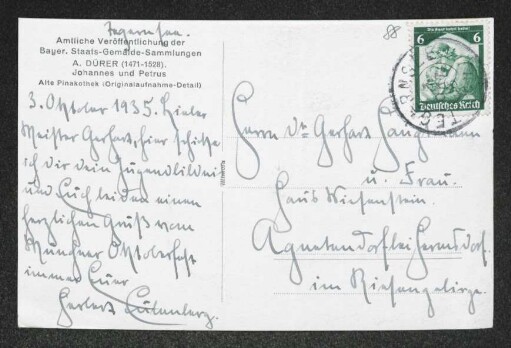 Tegernsee.
Amtliche Veröffentlichung der
Bayer. Staats-Gemälde-Sammlungen
A. DÜRER (1471-1528).
Johannes und Petrus
Alte Pinakothek (Originalaufnahme-Detail)
3. Oktober 1935. Lieber
Meister Gerhart, hier schicke
ich dir dein Jugendbildnis
und Euch beiden einen
herzlichen Gruß vom
Münchner Oktoberfest
immer Euer
Herbert Eulenberg.
Herrn Dr Gerhart Hauptmann
u. Frau.
Haus Wiesenstein.
Agnetendorf bei Hermsdorf.
im Riesengebirge.
6 6
Deutsches Reich
TEGERNSEE